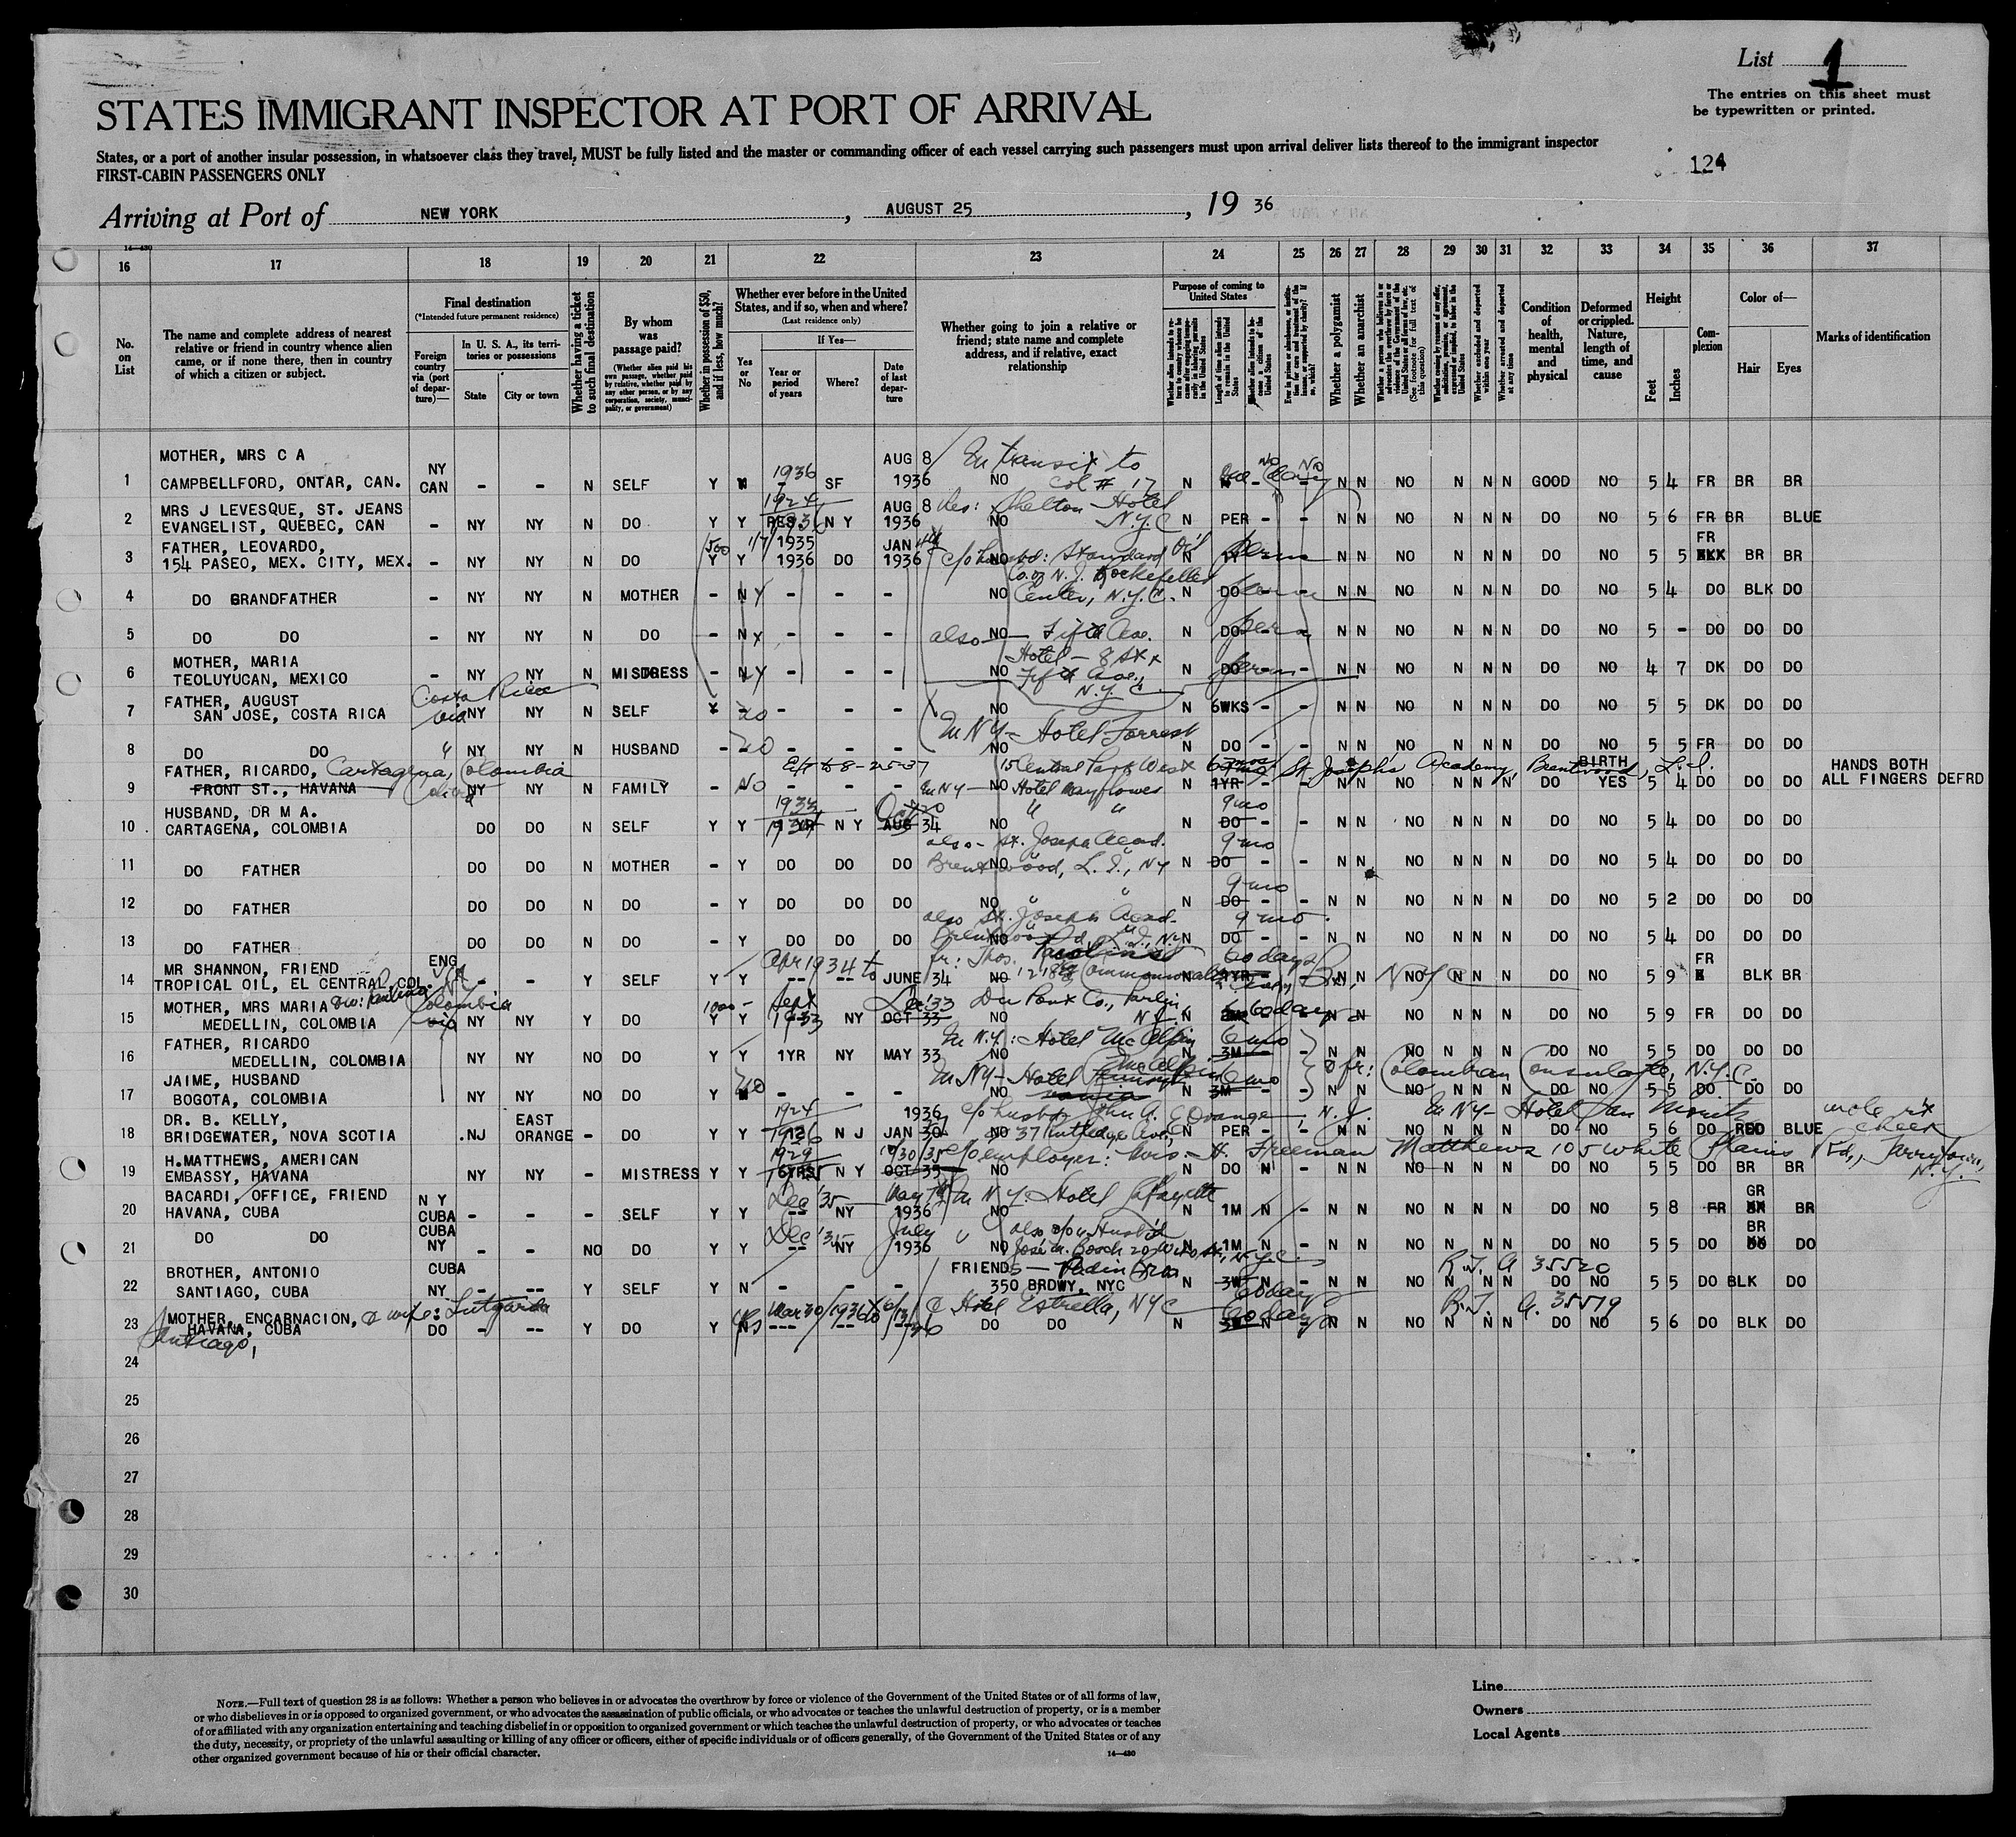 List 1
The entries on this sheet must
be typewritten or printed.
STATES IMMIGRANT INSPECTOR AT PORT OF ARRIVAL
States, or a port of another insular possession, in whatsoever class they travel, MUST be fully listed and the master or commanding officer of each vessel carrying such passengers must upon arrival deliver lists thereof to the immigrant inspector
FIRST-CABIN PASSENGERS ONLY
124
Arriving at Port of NEW YORK, AUGUST 25, 19 36
14-430
16 17 18 19 20 21 22 23 24 25 26 27 28 29 30 31 32 33 34 35 36 37
No. on List
The name and complete address of nearest relative or friend in country whence alien came, or if none there, then in country of which a citizen or subject.
Final destination
(*Intended future permanent residence)
Foreign country via (port of departure)—
In U. S. A., its territories or possessions
State
City or town
Whether having a ticket to such final destination
By whom was passage paid?
(Whether alien paid his own passage, whether paid by relative, whether paid by any other person, or by any corporation, society, municipality, or government)
Whether in possession of $50, and if less, how much?
Whether ever before in the United States, and if so, when and where?
(Last residence only)
Yes or No
If Yes—
Year or period of years
Where?
Date of last departure
Whether going to join a relative or friend; state name and complete address, and if relative, exact relationship
Purpose of coming to United States
Length of time alien intends to remain in the United States
Whether a polygamist
Whether an anarchist
Whether excluded and deported within one year
Whether arrested and deported at any time
Condition of health, mental and physical
Deformed or crippled. Nature, length of time, and cause
Height
Feet
Inches
Complexion
Color of—
Hair
Eyes
Marks of identification
MOTHER, MRS C A NY AUG 8 En transit to
1 CAMPBELLFORD, ONTAR, CAN. CAN - - N SELF Y 1936 SF 1936 NO col # 17 N N N NO N N N GOOD NO 5 4 FR BR BR
MRS J LEVESQUE, ST. JEANS 1924 AUG 8 Res: Shelton Hotel
2 EVANGELIST, QUEBEC, CAN - NY NY N DO Y Y RES. N Y 1936 NO N.Y.C N PER - - N N NO N N N DO NO 5 6 FR BR BLUE
FATHER, LEOVARDO, 500 1935 JAN FR
3 154 PASEO, MEX. CITY, MEX. - NY NY N DO Y Y 1936 DO 1936 NO c/o husbd: Standard Oil N N N NO N N N DO NO 5 5 BR BR
Co. of N. J. Rockefeller
4 DO GRANDFATHER - NY NY N MOTHER - N Y - - - NO Center, N.Y.C. N DO - - N N NO N N N DO NO 5 4 DO BLK DO
5 DO DO - NY NY N DO - N Y - - - also NO Fifth Ave. N DO - - N N NO N N N DO NO 5 - DO DO DO
MOTHER, MARIA Hotel -
6 TEOLUYUCAN, MEXICO - NY NY N MISTRESS - N Y - - - NO Fifth Ave., N.Y.C N DO - - N N NO N N N DO NO 4 7 DK DO DO
FATHER, AUGUST Costa Rica
7 SAN JOSE, COSTA RICA via NY NY N SELF no - - - NO N 6WKS - - N N NO N N N DO NO 5 5 DK DO DO
In NY - Hotel Forrest
8 DO DO NY NY N HUSBAND - no - - - NO N DO - - N N NO N N N DO NO 5 5 FR DO DO
FATHER, RICARDO, Cartagena, Colombia Ext to 8-25-37 15 Central Park West St. Joseph's Academy, Brentwood, L.I. BIRTH HANDS BOTH
9 FRONT ST., HAVANA NY NY N FAMILY - No - - - In NY - NO Hotel Mayflower N 1YR - - N N NO N N N DO YES 5 4 DO DO DO ALL FINGERS DEFRD
HUSBAND, DR M A. 1933 Oct 20 9 mo
10 CARTAGENA, COLOMBIA DO DO N SELF Y Y N Y AUG 34 NO N DO - - N N NO N N N DO NO 5 4 DO DO DO
also - St. Joseph Acad. 9 mo
11 DO FATHER DO DO N MOTHER - Y DO DO DO NO Brentwood, L. I., NY N DO - - N N NO N N N DO NO 5 4 DO DO DO
9 mo
12 DO FATHER DO DO N DO - Y DO DO DO NO N DO - - N N NO N N N DO NO 5 2 DO DO DO
also St. Joseph Acad. 9 mo.
13 DO FATHER DO DO N DO - Y DO DO DO NO Brentwood, L.I., NY N DO - - N N NO N N N DO NO 5 4 DO DO DO
MR SHANNON, FRIEND ENG Apr 1934 to fr: Thos. 60 days FR
14 TROPICAL OIL, EL CENTRAL, COL. - - Y SELF Y Y -- -- JUNE 34 NO 1218 Commonwealth N N N NO N DO NO 5 9 BLK BR
MOTHER, MRS MARIA Colombia 1000 - Sept Dec '33 Du Pont Co., Parlin
15 MEDELLIN, COLOMBIA via NY NY Y DO Y Y 1933 NY OCT 33 NO N.J. N 60 days N N NO N N N DO NO 5 9 FR DO DO
FATHER, RICARDO In N.Y.: Hotel McAlpin 6 mo
16 MEDELLIN, COLOMBIA NY NY NO DO Y Y 1YR NY MAY 33 NO N 3M - - N N NO N N N DO NO 5 5 DO DO DO
JAIME, HUSBAND In NY - Hotel McAlpin 6 mo fr: Colombian Consulate, N.Y.C.
17 BOGOTA, COLOMBIA NY NY NO DO Y no - - - NO N 3M - - N N NO N N N DO NO 5 5 DO DO DO
DR. B. KELLY, EAST 1924 1936 c/o husb: John A. E Orange, N.J. In NY - Hotel San Moritz mole rt
18 BRIDGEWATER, NOVA SCOTIA NJ ORANGE - DO Y Y 1936 N J JAN 30 NO 37 Rutledge Ave., N PER - - N N NO N N N DO NO 5 6 DO RED BLUE cheek
H.MATTHEWS, AMERICAN 1929 c/o employer: Mrs. H. Freeman Matthews 105 White Plains Rd., Tarrytown,
19 EMBASSY, HAVANA NY NY - MISTRESS Y Y 6YRS N Y OCT 35 NO N DO N - N N NO N N N DO NO 5 5 DO BR BR N.Y.
BACARDI, OFFICE, FRIEND N Y Dec '35 May In N.Y. Hotel Lafayette GR
20 HAVANA, CUBA CUBA - - - SELF Y Y -- NY 1936 NO N 1M N - N N NO N N N DO NO 5 8 FR BR
CUBA Dec '35 July also c/o Husb'd BR
21 DO DO NY - - NO DO Y Y -- NY 1936 NO José M. Bosch N 1M N - N N NO N N N DO NO 5 5 DO DO
BROTHER, ANTONIO CUBA FRIENDS - R.T. A 35520
22 SANTIAGO, CUBA NY - -- Y SELF Y N - - - 350 BRDWY, NYC N 3W N - N N NO N N N DO NO 5 5 DO BLK DO
60 days
MOTHER, ENCARNACION, wife: Lutgarda Mar 30/1936 to @ Hotel Estrella, NYC 60 days R.T. A. 35519
23 HAVANA, CUBA DO - -- Y DO Y --- -- -- DO DO N N - N N NO N N N DO NO 5 6 DO BLK DO
Santiago,
24
25
26
27
28
29
30
NOTE.—Full text of question 28 is as follows: Whether a person who believes in or advocates the overthrow by force or violence of the Government of the United States or of all forms of law,
or who disbelieves in or is opposed to organized government, or who advocates the assassination of public officials, or who advocates or teaches the unlawful destruction of property, or is a member
of or affiliated with any organization entertaining and teaching disbelief in or opposition to organized government or which teaches the unlawful destruction of property, or who advocates or teaches
the duty, necessity, or propriety of the unlawful assaulting or killing of any officer or officers, either of specific individuals or of officers generally, of the Government of the United States or of any
other organized government because of his or their official character.
14—430
Line
Owners
Local Agents